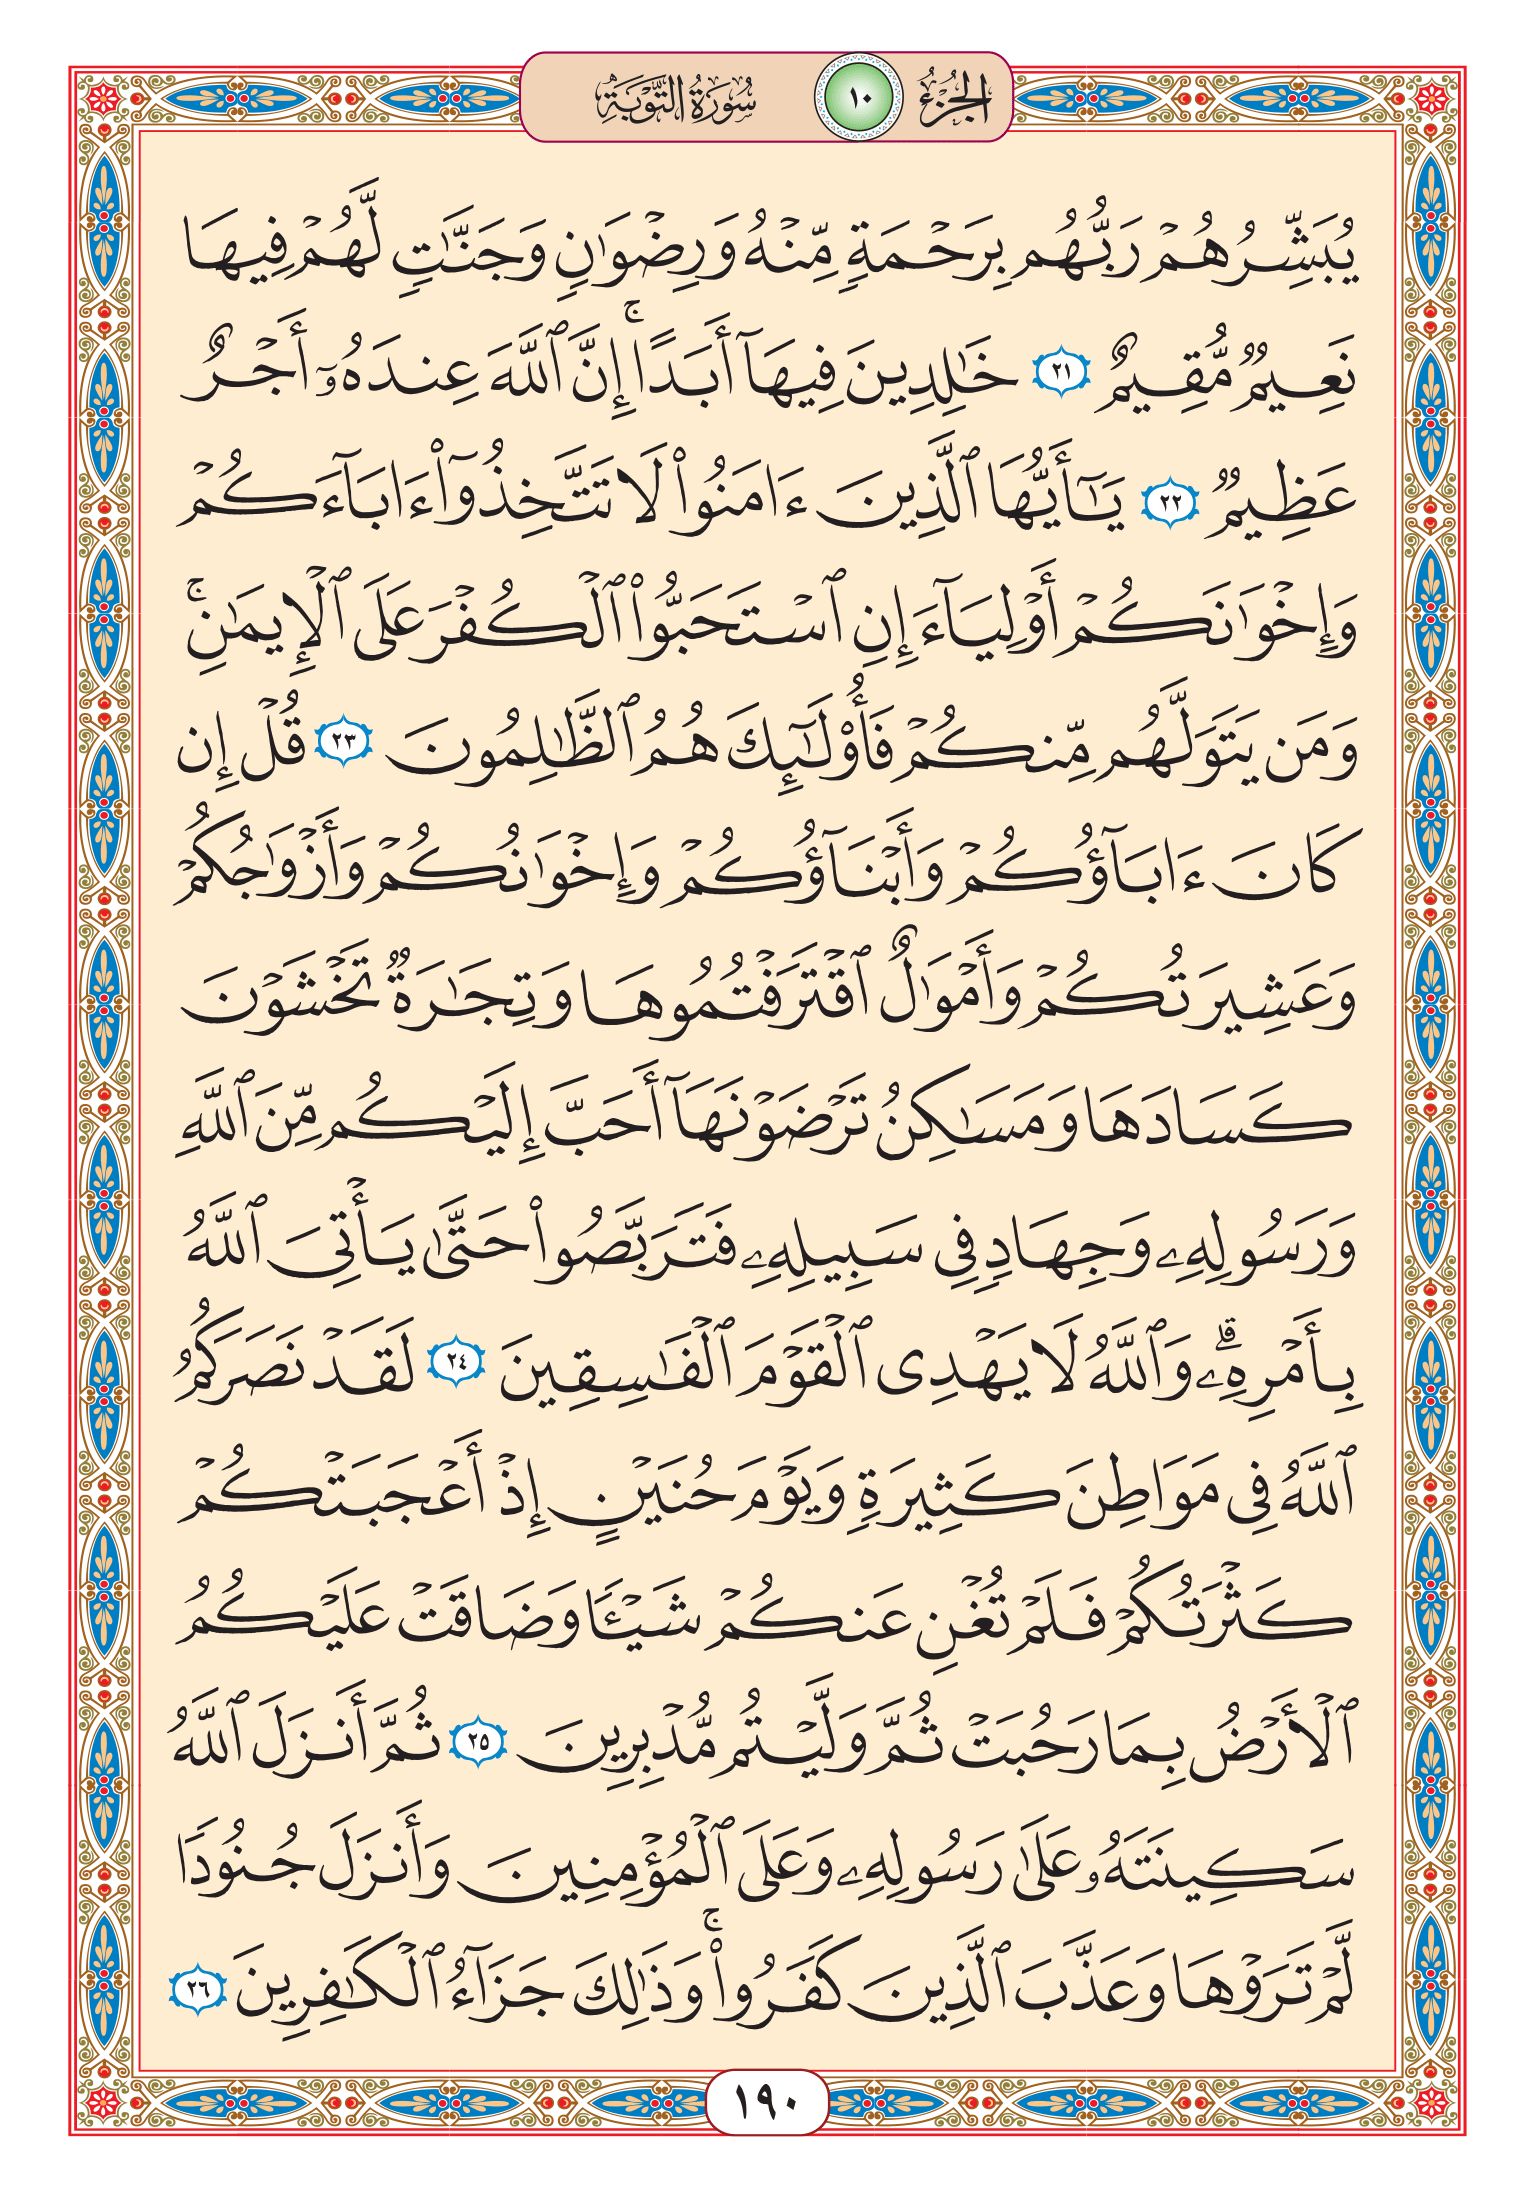 الجزء ١٠ سورة التوبة
يُبَشِّرُهُمْ رَبُّهُم بِرَحْمَةٍ مِّنْهُ وَرِضْوَٰنٍ وَجَنَّٰتٍ لَّهُمْ فِيهَا
نَعِيمٌ مُّقِيمٌ ٢١ خَٰلِدِينَ فِيهَآ أَبَدًا ۚ إِنَّ ٱللَّهَ عِندَهُۥٓ أَجْرٌ
عَظِيمٌ ٢٢ يَٰٓأَيُّهَا ٱلَّذِينَ ءَامَنُوا۟ لَا تَتَّخِذُوٓا۟ ءَابَآءَكُمْ
وَإِخْوَٰنَكُمْ أَوْلِيَآءَ إِنِ ٱسْتَحَبُّوا۟ ٱلْكُفْرَ عَلَى ٱلْإِيمَٰنِ ۚ
وَمَن يَتَوَلَّهُم مِّنكُمْ فَأُو۟لَٰٓئِكَ هُمُ ٱلظَّٰلِمُونَ ٢٣ قُلْ إِن
كَانَ ءَابَآؤُكُمْ وَأَبْنَآؤُكُمْ وَإِخْوَٰنُكُمْ وَأَزْوَٰجُكُمْ
وَعَشِيرَتُكُمْ وَأَمْوَٰلٌ ٱقْتَرَفْتُمُوهَا وَتِجَٰرَةٌ تَخْشَوْنَ
كَسَادَهَا وَمَسَٰكِنُ تَرْضَوْنَهَآ أَحَبَّ إِلَيْكُم مِّنَ ٱللَّهِ
وَرَسُولِهِۦ وَجِهَادٍ فِى سَبِيلِهِۦ فَتَرَبَّصُوا۟ حَتَّىٰ يَأْتِىَ ٱللَّهُ
بِأَمْرِهِۦ ۗ وَٱللَّهُ لَا يَهْدِى ٱلْقَوْمَ ٱلْفَٰسِقِينَ ٢٤ لَقَدْ نَصَرَكُمُ
ٱللَّهُ فِى مَوَاطِنَ كَثِيرَةٍ وَيَوْمَ حُنَيْنٍ إِذْ أَعْجَبَتْكُمْ
كَثْرَتُكُمْ فَلَمْ تُغْنِ عَنكُمْ شَيْـًٔا وَضَاقَتْ عَلَيْكُمُ
ٱلْأَرْضُ بِمَا رَحُبَتْ ثُمَّ وَلَّيْتُم مُّدْبِرِينَ ٢٥ ثُمَّ أَنزَلَ ٱللَّهُ
سَكِينَتَهُۥ عَلَىٰ رَسُولِهِۦ وَعَلَى ٱلْمُؤْمِنِينَ وَأَنزَلَ جُنُودًا
لَّمْ تَرَوْهَا وَعَذَّبَ ٱلَّذِينَ كَفَرُوا۟ ۚ وَذَٰلِكَ جَزَآءُ ٱلْكَٰفِرِينَ ٢٦
١٩٠